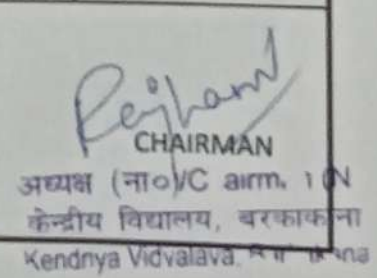 CHAIRMAN
अध्यक्ष (ना०)/C airm.
केन्द्रीय विद्यालय, बरकाकाना
Kendriya Vidyalaya,